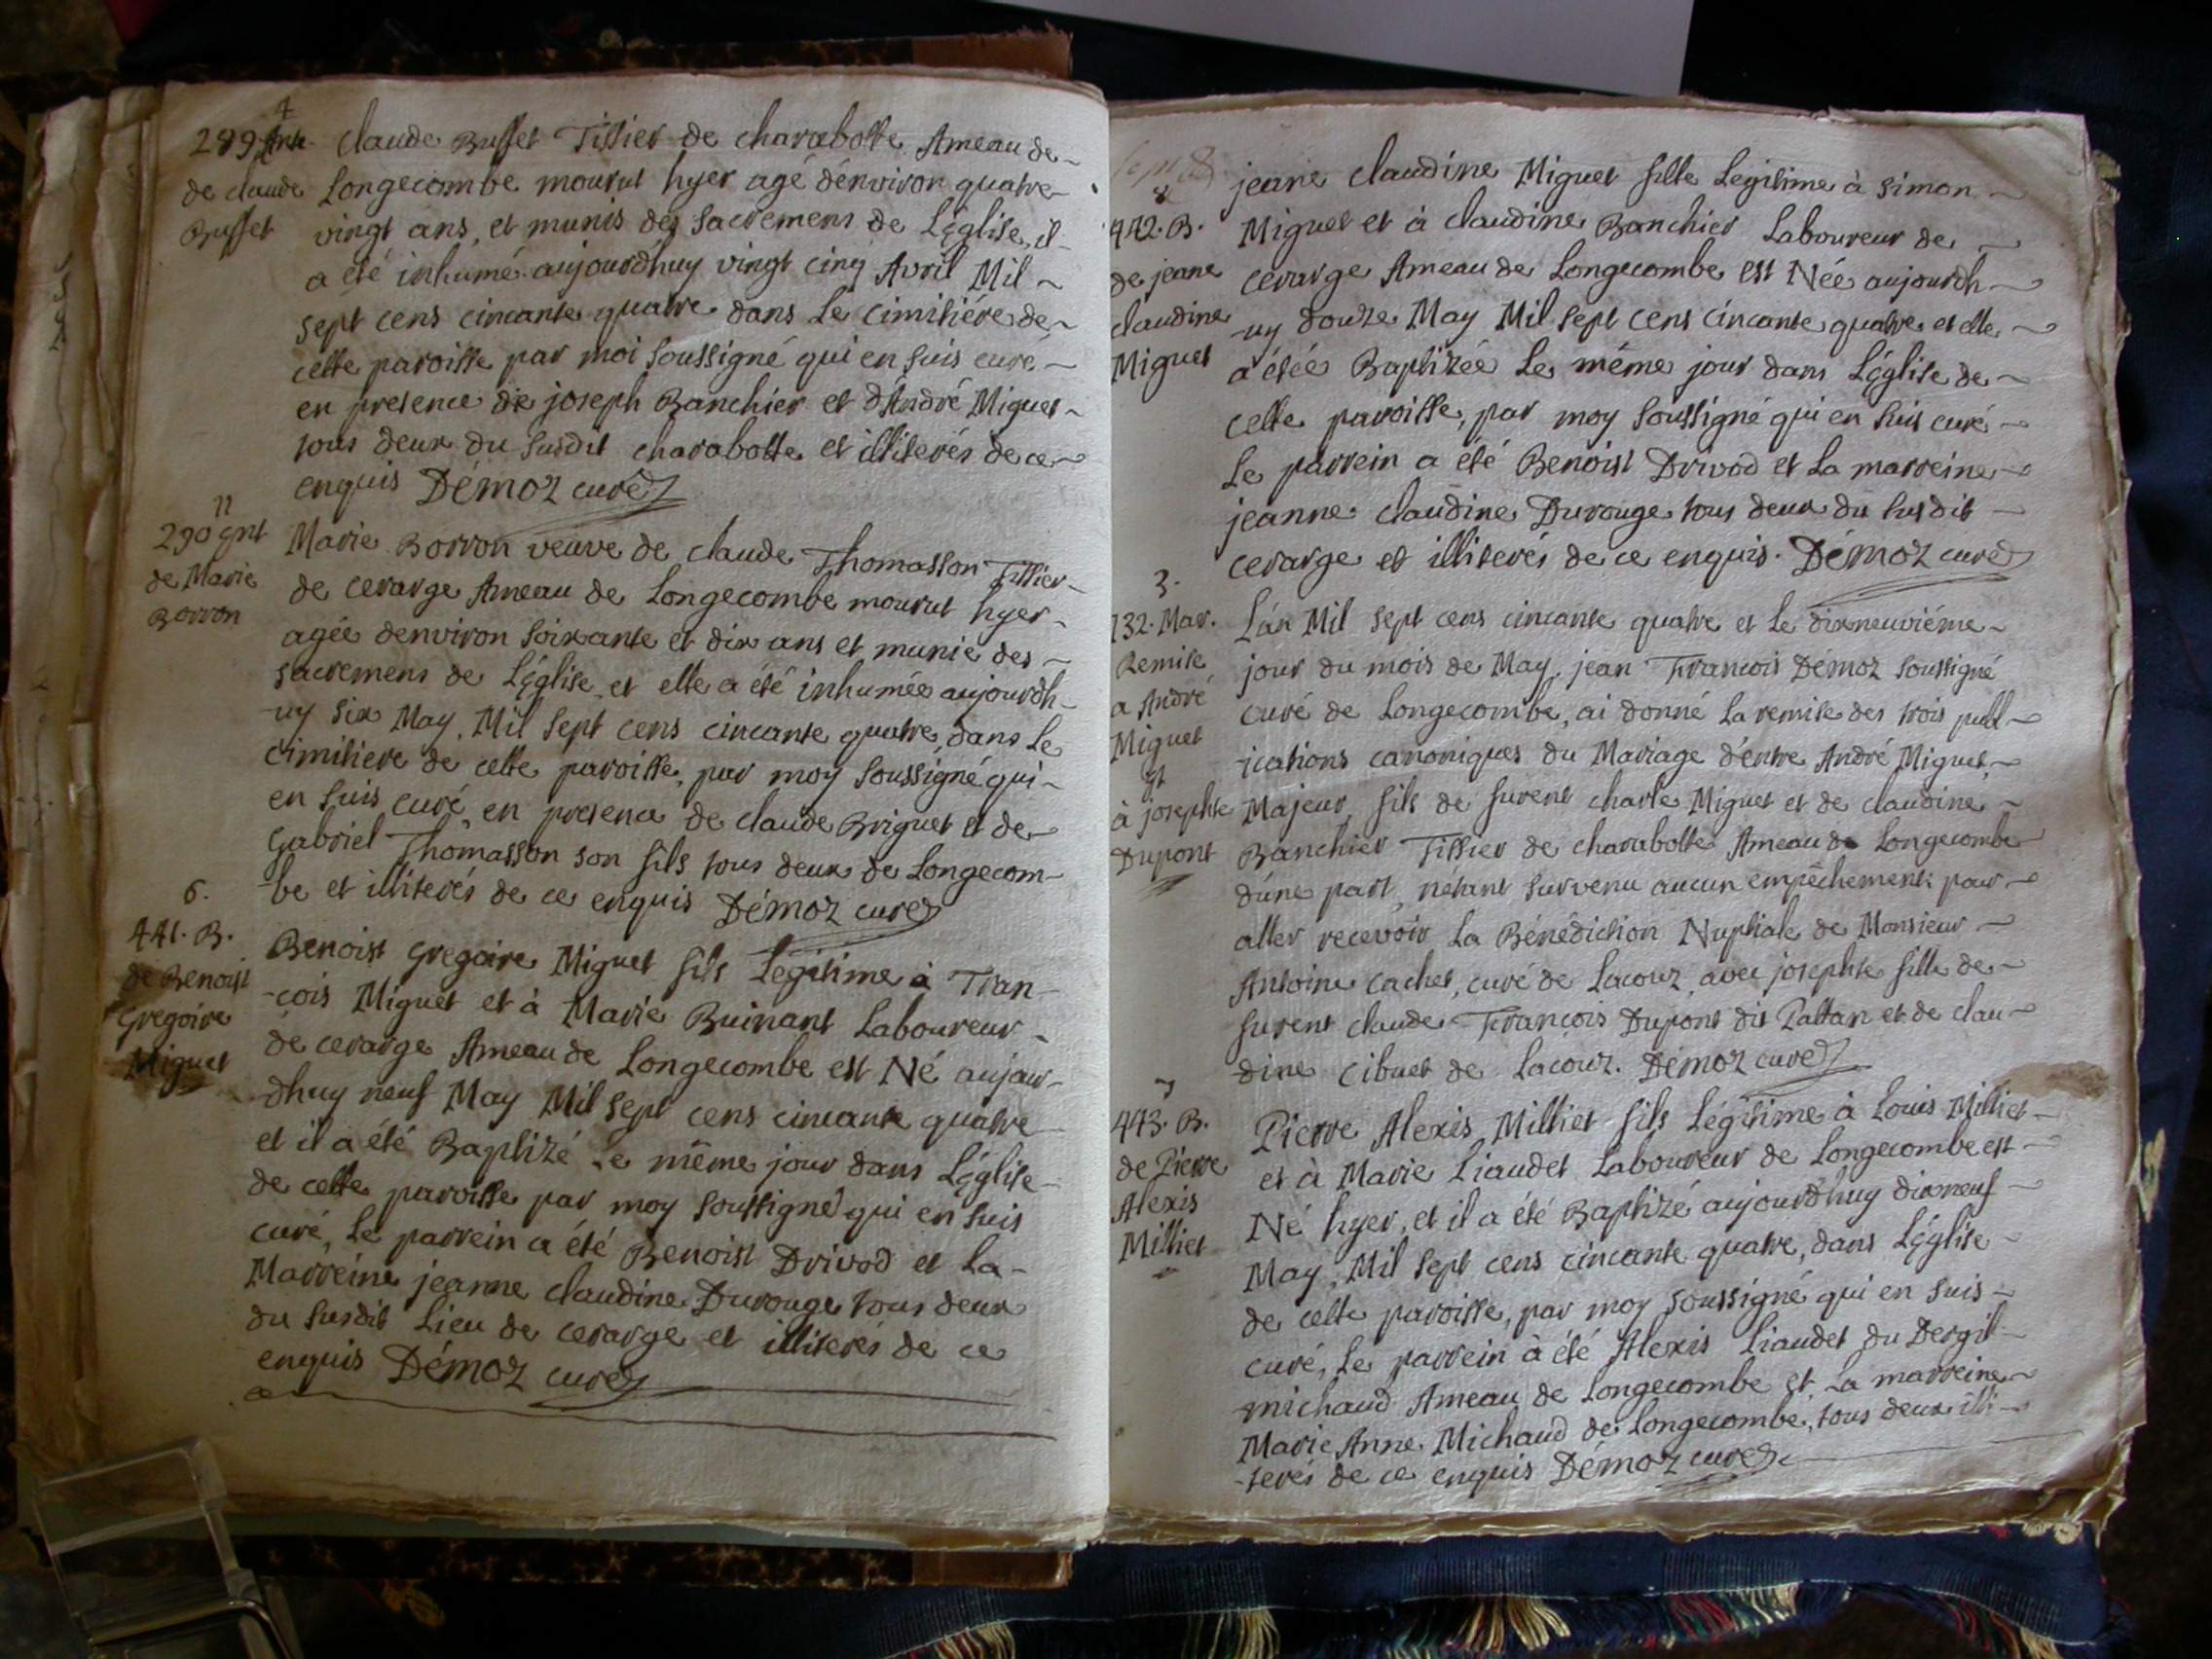 4
289 Ent.
de claude
Buffet
Claude Buffet Tissier de charabotte Ameau de
Longecombe mourut hyer agé dénviron quatre
vingt ans, et munis des sacremens de L'église, il
a été inhumé aujourd'huy vingt cinq Avril Mil
sept cens cincante quatre dans Le cimitiére de
cette paroisse par moi soussigné qui en suis curé
en presence de joseph Banchier et d'André Miguet
tous deux du susdit charabotte et illiterés de ce
enquis Démoz curé
11
290 Ent
de Marie
Borron
Marie Borron veuve de claude Thomasson Tissier
de cerarge Ameau de Longecombe mourut hyer
agée denviron soixante et dix ans et munie des
sacremens de L'église et elle a été inhumée aujourdh-
-uy six May, Mil sept cens cincante quatre, dans Le
cimitiere de cette paroisse, par moy soussigné qui
en suis curé en presence de claude Briguet et de
Gabriel Thomasson son fils tous deux de Longecom-
-be et illiterés de ce enquis Démoz curé
6.
441. B.
de Benoist
Gregoire
Miguet
Benoist Gregoire Miguet fils Legitime à Fran-
-cois Miguet et à Marie Buinant Laboureur
de cerarge Ameau de Longecombe est Né aujour-
dhuy neuf May Mil sept cens cincante quatre
et il a été Baptizé Le même jour dans L'église
de cette paroisse par moy soussigné qui en suis
curé, Le parrein a été Benoist Drivod et La
Marreine jeanne claudine Durouge tous deux
du susdit Lieu de cerarge et illiterés de ce
enquis Démoz curé
8
442. B.
de jeane
claudine
Miguet
jeane claudine Miguet fille Legitime à simon
Miguet et à claudine Banchier Laboureur de
cerarge Ameau de Longecombe est Née aujourdh-
-uy douze May Mil sept cens cincante quatre et elle
a étée Baptizée Le même jour dans L'église de
cette paroisse, par moy soussigné qui en suis curé
Le parrein a été Benoist Drivod et La marreine
jeanne claudine Durouge tous deux du susdit
cerarge et illiterés de ce enquis. Démoz curé
3.
132. Mar.
Remise
a André
Miguet
et
à josephte
Dupont
L'an Mil sept cens cincante quatre et Le dixneuviéme
jour du mois de May, jean Francois Démoz soussigné
curé de Longecombe, ai donné La remise des trois publ-
ications canoniques du Mariage d'entre André Miguet,
Majeur, fils de furent charle Miguet et de claudine
Banchier Tissier de charabotte Ameau de Longecombe
d'une part, n'étant survenu aucun empêchement pour
aller recevoir La Bénédiction Nuptiale de Monsieur
Antoine Cachet, curé de Lacouz, avec josephte fille de
furent claude Francois Dupont dit Paltan et de clau-
dine Cibuet de Lacouz. Démoz curé
7
443. B.
de Pierre
Alexis
Milliet
Pierre Alexis Milliet fils Légitime à Louis Milliet
et à Marie Liaudet Laboureur de Longecombe est
Né hyer, et il a été Baptizé aujourdhuy dixneuf
May, Mil sept cens cincante quatre, dans L'église
de cette paroisse, par moy soussigné qui en suis
curé, Le parrein à été Alexis Liaudet du Dergit
michaud Ameau de Longecombe et La marreine
Marie Anne Michaud de Longecombe, tous deux illi-
-terés de ce enquis Démoz curé